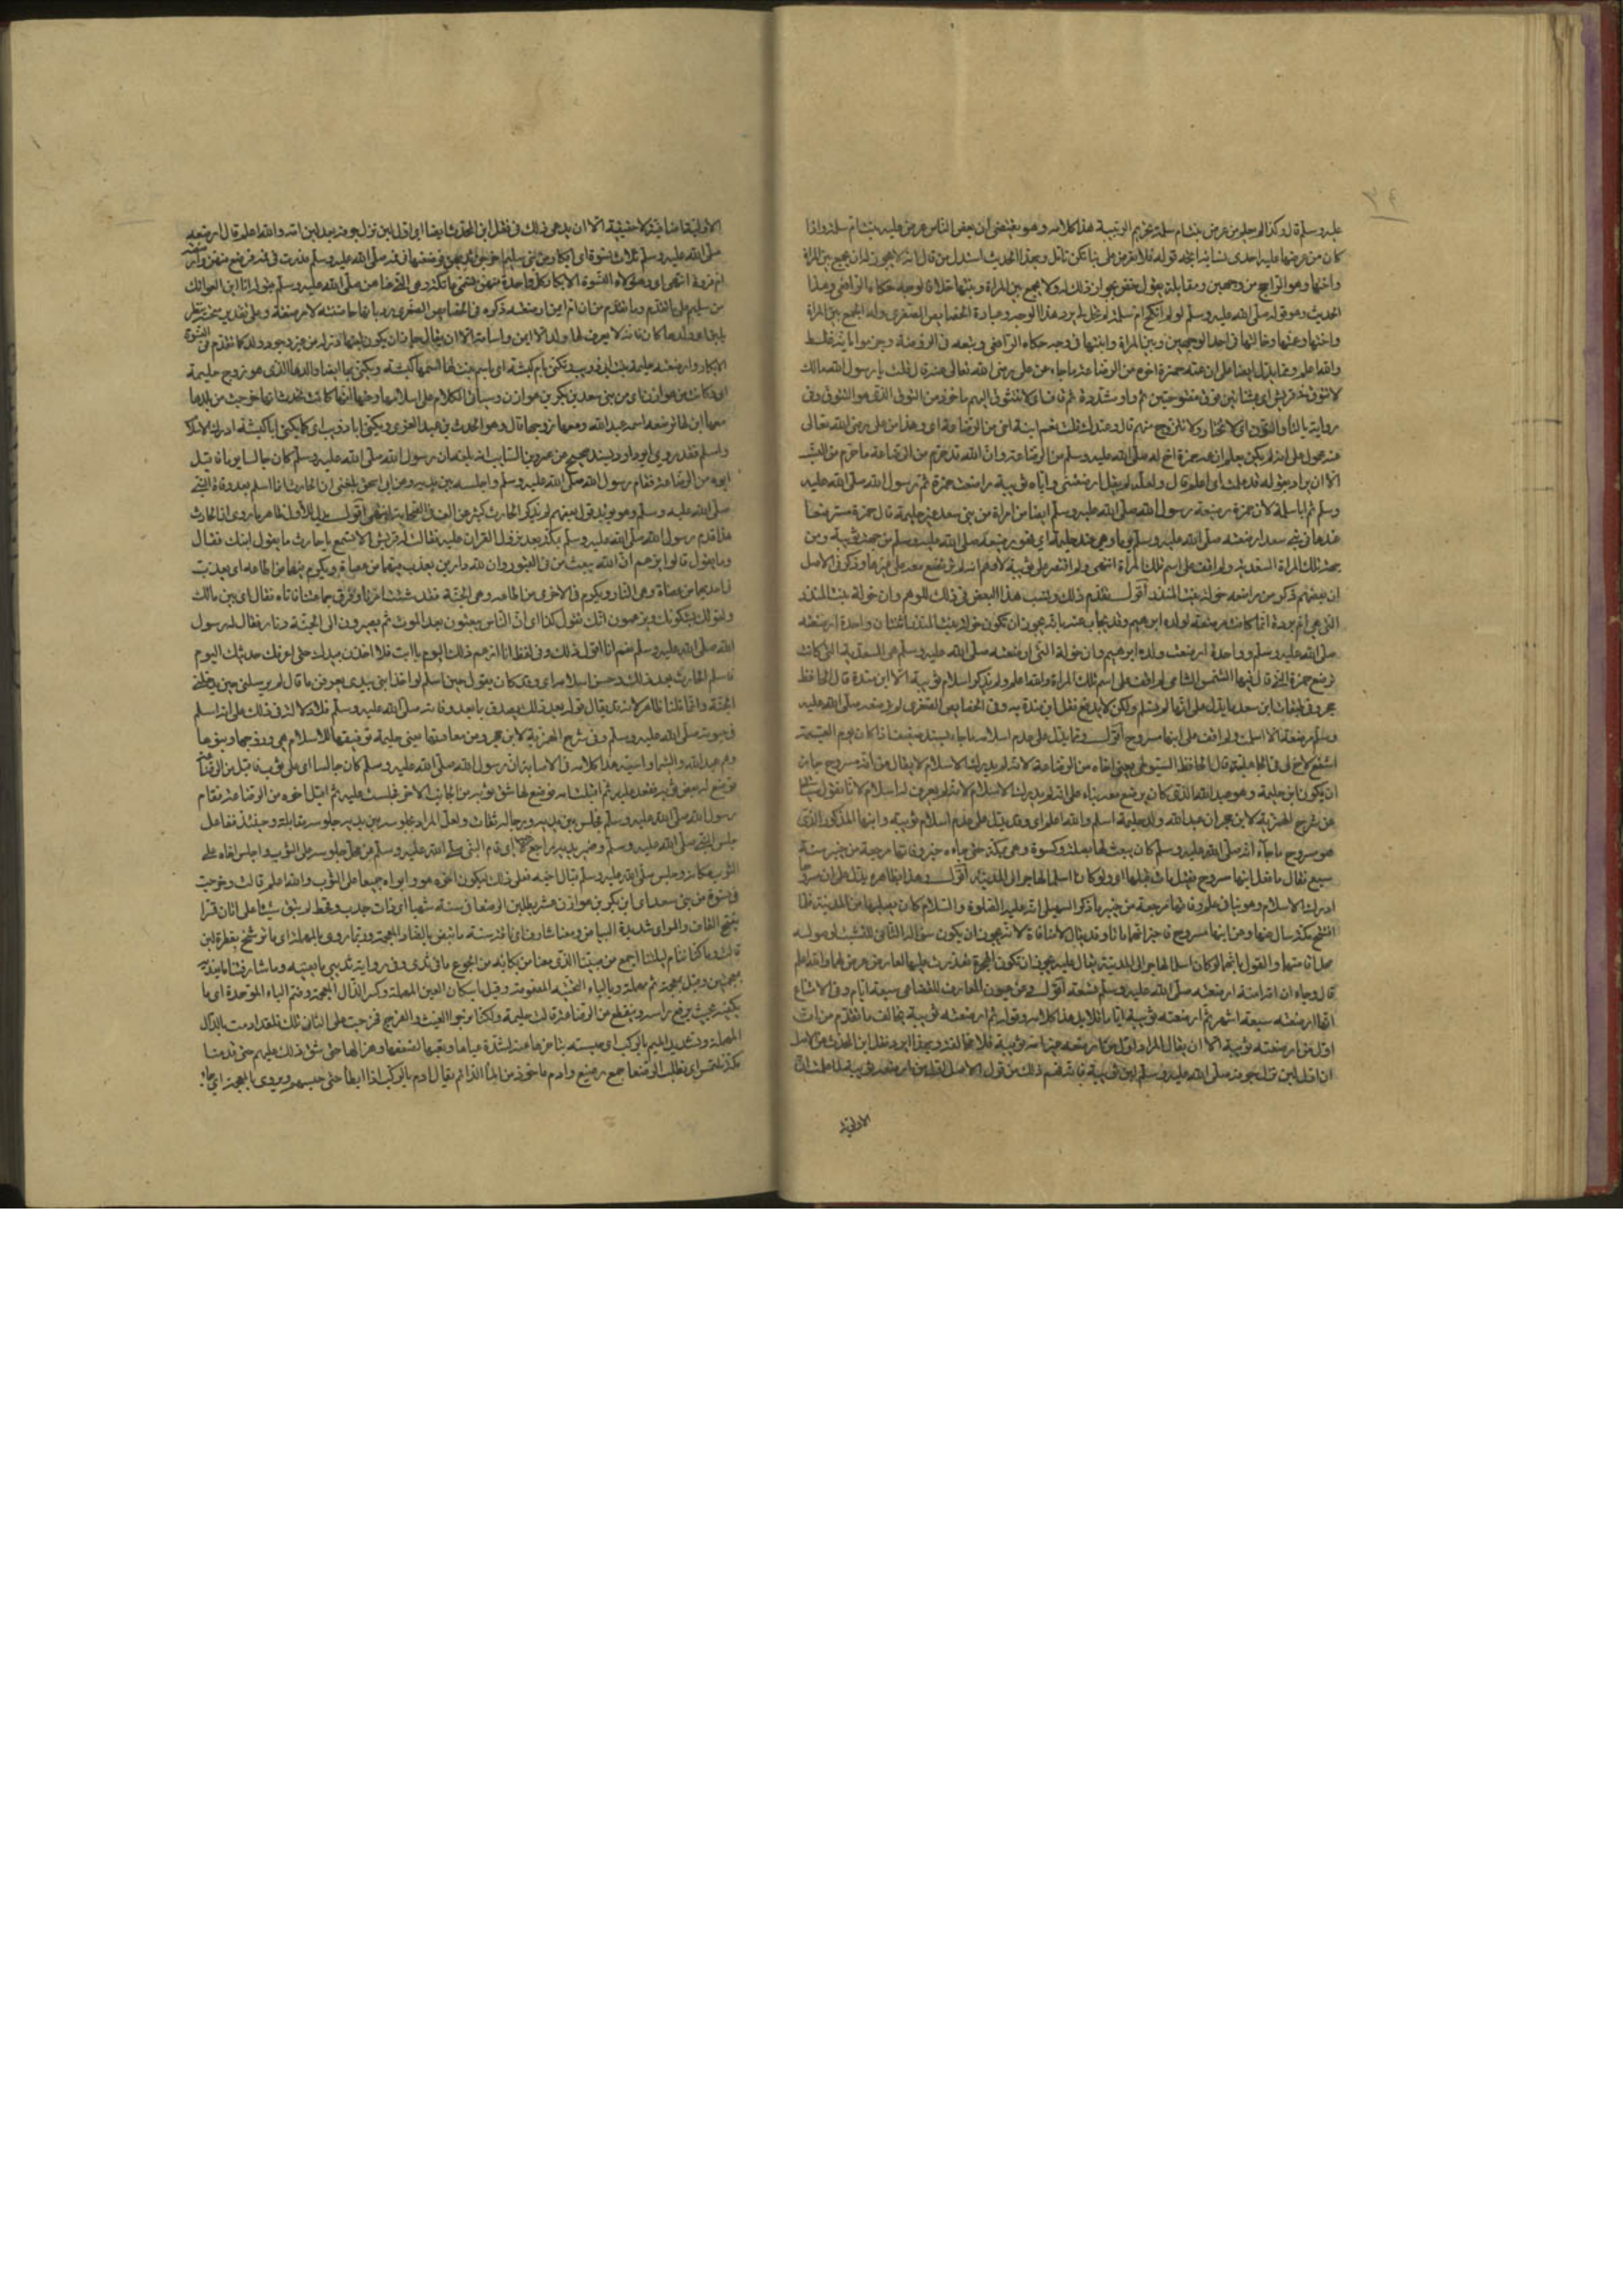 عليه وسلم قال وكذا لو جلوس عرض بنت ام سلمة بتحريم الربيبة هذا كلامه وهو يقتضي ان بعض الناس عرض عليه بنت ام سلمة واذا
كان من عرضها عليه احدى نسائه قوله فلا تعرضن علي بناتكن تأمل وبهذا الحديث استدل من قال انه لا يجوز له ان يجمع بين المرأة
واختها وهو الراجح من وجهين ومقابله يقول بجواز ذلك له ولا يجمع بين المرأة وبنتها خلافا لوجه حكاه الرافعي وهذا
الحديث وهو قوله صلى الله عليه وسلم لو لم انكح ام سلمة لم تحل لي يرد هذا الوجه وعبارة الخصائص الصغرى وله الجمع بين المرأة
واختها وعمتها وخالتها في احد الوجهين وبين المرأة وابنتها في وجه حكاه الرافعي وتبعه في الروضة وجزموا بانه غلط
والله اعلم ومما يدل ايضا على ان عمه حمزة اخوه من الرضاعة ما جاء عن علي رضي الله تعالى عنه قال قلت يا رسول الله مالك
لا تتوق في قريش اي بمثناتين فوق مفتوحتين ثم واو مشددة ثم قاف اي لا تتشوق اليهم ماخوذ من التوق الذي هو الشوق وفي
رواية بالتاء والنون اي لا تختار ولا تتزوج منهم قال وعندك قلت نعم ابنة حمزة قال تلك ابنة اخي من الرضاعة اي وهذا من علي رضي الله تعالى
عنه محمول على انه لم يكن يعلم ان عمه حمزة اخ له صلى الله عليه وسلم من الرضاعة وان الله قد حرم من الرضاعة ما حرم من النسب
الا ان يراد بقوله قد علمت اي اعلم قال ولعله لم يقل ارضعتني واياه ثويبة
وسلم ثم ابا سلمة لان حمزة رضيعه رسول الله صلى الله عليه وسلم ايضا من امرأة من بني سعد غير حليمة كان حمزة مسترضعا
عندها في بني سعد ارضعته صلى الله عليه وسلم يوما وهي عند حليمة اي فهو رضيعه صلى الله عليه وسلم من جهة ثويبة ومن
جهة تلك المرأة السعدية ولم اقف على اسم تلك المرأة انتهى ولو اقتصر على ثويبة لاوهم انه لم يرتضع معه على غيرها وذكر في الاصل
ان بعضهم ذكر من مراضعه خولة بنت المنذر اقول تقدم ذلك ونسب هذا البعض في ذلك للوهم وان خولة بنت المنذر
التي هي ام بردة انما كانت مرضعة لولده ابراهيم وقد يجاب عنه بانه يجوز ان تكون خولة بنت المنذر اثنتان واحدة ارضعته
صلى الله عليه وسلم وواحدة ارضعت ولده ابراهيم وان خولة التي ارضعته صلى الله عليه وسلم هي السعدية التي كانت
ترضع حمزة التي قال فيها الشمس الشامي لم اقف على اسم تلك المرأة والله اعلم ولم يذكر اسلام ثويبة الا ابن مندة قال الحافظ
حجر وفي طبقات ابن سعد ما يدل على انها لم تسلم ولكن لا يدفع نقل ابن مندة به وفي الخصائص الصغرى لم ترضعه صلى الله عليه
وسلم مرضعة الا اسلمت ولم اقف على ابنها مسروح اقول ومما يدل على عدم اسلامه ما جاء بسند ضعيف اذا كان يوم القيمة
اشفع لاخ لي في الجاهلية قال الحافظ السيوطي يعني اخاه من الرضاعة لانه لم يدرك الاسلام لا يقال من اين انه مسروح جاز
ان يكون ابن حليمة وهو عبد الله الذي كان يرضع معه بناء على انه لم يدرك الاسلام لانه لم يعرف له اسلام لانا نقول سياتي
عن شرح الهمزية لابن حجر ان عبد الله ولد حليمة اسلم والله اعلم اي وقد يدل على عدم اسلام ثويبة وابنها المذكور الذي
هو مسروح ما جاء انه صلى الله عليه وسلم كان يبعث لها بصلة وكسوة وهي بمكة حتى جاءه خبر وفاتها مرجعه من خيبر سنة
سبع فقال ما فعل ابنها مسروح فقيل مات قبلها اي ولو كانا اسلما لهاجرا الى المدينة اقول وهذا بظاهره يدل على ان مسروحا
ادرك الاسلام وهو ينافي علم وفاتها مرجعه من خيبر ما ذكر السهيلي انه عليه الصلوة والسلام كان يصلها من المدينة فلما
افتتح مكة سال عنها وعن ابنها مسروح فاخبر انهما ماتا وقد يقال لا منافاة لانه يجوز ان يكون سؤاله الثاني للتثبت
والقول بانهما لو كانا اسلما لهاجرا الى المدينة يقال عليه يجوز ان تكون الهجرة تعذرت عليهما لعارض عرض لهما والله اعلم
قال وجاء ان اقول امه ارضعته صلى الله عليه وسلم تسعة وعن عيون المعارف للقضاعي سبعة ايام وفي الامتاع
انها ارضعته سبعة اشهر ثم ارضعته ثويبة اياما قلائل هذا كلامه وقوله ثم ارضعته ثويبة يخالف ما تقدم من ان
اول من ارضعته ثويبة الا ان يقال المراد اول من ارضعته غير امه ثويبة فلا مخالفة وبهذا يرد نقل ابن المحدث عن الامل
ان اول لبن نزل جوفه صلى الله عليه وسلم لبن ثويبة
الاولية
الاولية اضافية لا حقيقية الا ان يدعي ذلك في نقل ابن المحدث ايضا اي اول لبن نزل جوفه بعد لبن امه والله اعلم قال وارضعه
صلى الله عليه وسلم ثلاث نسوة اي ابكار من بني سليم اخرجن ثديهن فوضعنها في فمه صلى الله عليه وسلم فدرت في فمه فرضع منهن وارضعته
ام فروة انتهى اي وهؤلاء النسوة الابكار كل واحدة منهن تسمى عاتكة وهي التي عناهن صلى الله عليه وسلم بقوله انا ابن العواتك
من سليم على ما تقدم وما تقدم من ان ام ايمن ارضعته ذكره في الخصائص الصغرى رد بانها حاضنته لا مرضعته وعلى تقدير صحته ينظر
بلبن اي ولد لها كان فانه لا يعرف لها ولد الا ايمن واسامة الا ان يقال جاز ان يكون لبنها در له من غير وجود ولد كما تقدم في النسوة
الابكار وارضعته حليمة بنت ابي ذؤيب وتكنى بام كبشة اي باسم بنت لها اسمها كبشة ويكنى بها ايضا والدها الذي هو زوج حليمة
اي وكانت من هوازن اي من بني سعد بن بكر بن هوازن وسياتي الكلام على اسلامها وعنها انها كانت تحدث انها خرجت من بلدها
معها ابن لها ترضعه اسمه عبد الله ومعها زوجها قال وهو الحارث بن عبد العزى ويكنى ابا ذؤيب اي كما يكنى ابا كبشة ادرك الاسلام
واسلم فقد روى ابو داود بسند صحيح عن عمرو بن السائب انه بلغه ان رسول الله صلى الله عليه وسلم كان جالسا يوما فاقبل
ابوه من الرضاعة فقام رسول الله صلى الله عليه وسلم واجلسه بين يديه وعن ابن اسحق بلغني ان الحارث انما اسلم بعد وفاة النبي
صلى الله عليه وسلم وهو يؤيد قول بعضهم لم يذكر الحارث كثير ممن الف في الصحابة انتهى اقول يدل للاول ظاهر ما روى ان الحارث
هذا قدم رسول الله صلى الله عليه وسلم بمكة بعد نزول القران عليه فقالت له قريش الا تسمع يا حارث ما يقول ابنك فقال
وما يقول قالوا يزعم ان الله يبعث من في القبور وان لله دارين يعذب فيهما من عصاه ويكرم فيهما من اطاعه اي يعذب
في احديهما من عصاه وهي النار ويكرم في الاخرى من اطاعه وهي الجنة فقد شتت امرنا وفرق جماعتنا فاتاه فقال اي بني مالك
ولقومك يشكونك ويزعمون انك تقول كذا اي ان الناس يبعثون بعد الموت ثم يصيرون الى الجنة ونار فقال له رسول
الله صلى الله عليه وسلم نعم انا اقول ذلك وفي لفظ انا ازعم ذلك اليوم يا ابت فلاخذن بيدك حتى اعرفك حديثك اليوم
فاسلم الحارث بعد ذلك وحسن اسلامه اي وقد كان يقول حين اسلم لو اخذ ابني بيدي يعرفني ما قال لم يرسلني حتى يدخلني
الجنة وانما قلنا ظاهر لانه قد يقال قوله بعد ذلك يصدق بما بعد وفاته صلى الله عليه وسلم فلا دلالة في ذلك على انه اسلم
في حيوته صلى الله عليه وسلم وفي شرح الهمزية لابن حجر ومن سعادتها يعني حليمة توفيقها للاسلام هي وزوجها وبنوها
وهم عبد الله والشيماء وانيسة هذا كلامه في الاصابة ان رسول الله صلى الله عليه وسلم كان جالسا اي على ثوب فاقبل من الرضاعة
فوضع له بعض ثوبه فقعد عليه ثم اقبلت امه فوضع لها شق ثوبه من الجانب الاخر فجلست عليه ثم اقبل اخوه من الرضاعة فقام
رسول الله صلى الله عليه وسلم فجلس بين يديه ورجاله ثقات ولعل المراد بجلوسه بين يديه جلوسه مقابله وحينئذ ففاعل
جلس النبي صلى الله عليه وسلم وضمير يديه راجع الى قام النبي صلى الله عليه وسلم عن محل جلوسه على الثوب واجلس اخاه على
الثوب مكانه وجلس صلى الله عليه وسلم قبال اخيه فعل ذلك ليكون اخوه هو وابواه جميعا على الثوب والله اعلم قالت وخرجت
في نسوة من بني سعد اي ابن بكر بن هوازن عشرة يطلبن الرضعا في سنة شهبا اي ذات جدب وقحط لم تبق شيئا على اتان قمرا
بفتح القاف والمد اي شديدة البياض ومعنا شارف اي ناقة مسنة ما تبض بالضاد المعجمة وربما روي بالمهملة اي ما ترشح بقطرة لبن
قالت وما كنا ننام ليلتنا اجمع من صبينا الذي معنا من بكائه من الجوع ما في ثديي وفي رواية ثديي ما يغنيه وما شارفنا ما يغذيه
بمعجمتين وقيل بمعجمة ثم مهملة وبالياء التحتية المفتوحة وقيل باسكان العين المهملة وكسر الذال المعجمة وضم الياء الموحدة اي ما
يكفيه بحيث يرفع راسه وينقطع من الرضاعة قالت حليمة ولكنا نرجوا الغيث والفرج فخرجت على اتاني تلك فلقد ادمت بالدال
المهملة وتشديد الميم بالركب اي حبسته بتاخرها عنه لشدة عيائها وتعبها لضعفها وهزالها حتى شق ذلك عليهم حتى قدمنا
مكة نلتمس اي نطلب الرضعا جمع رضيع وادم ماخوذ من الماء الدائم يقال ادم بالركب اذا ابطأ حتى حبسهم ويروى بالمعجمة اي جاء